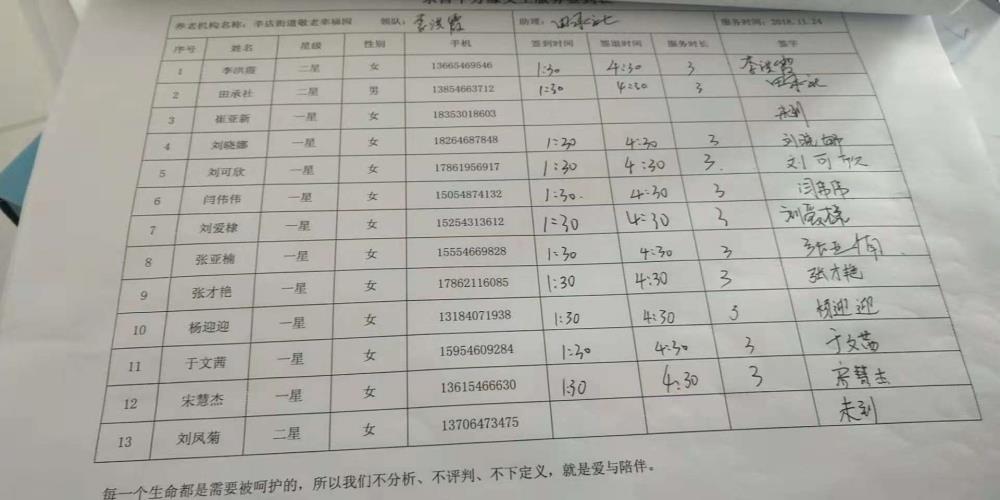 养老机构名称：辛店街道敬老幸福园 领队：李洪霞 助理：田承社 服务时间：2018.11.24
序号 姓名 星级 性别 手机 签到时间 签退时间 服务时长 签字
1 李洪霞 二星 女 13665469546 1:30 4:30 3 李洪霞
2 田承社 二星 男 13854663712 1:30 4:30 3 田承社
3 崔亚新 一星 女 18353018603 未到
4 刘晓娜 一星 女 18264687848 1:30 4:30 3 刘晓娜
5 刘可欣 一星 女 17861956917 1:30 4:30 3. 刘可欣
6 闫伟伟 一星 女 15054874132 1:30. 4:30 3 闫伟伟
7 刘爱棣 一星 女 15254313612 1:30 4:30 3 刘爱棣
8 张亚楠 一星 女 15554669828 1:30 4:30 3 张亚楠
9 张才艳 一星 女 17862116085 1:30 4:30 3 张才艳
10 杨迎迎 一星 女 13184071938 1:30 4:30 3 杨迎迎
11 于文茜 一星 女 15954609284 1:30 4:30 3 于文茜
12 宋慧杰 一星 女 13615466630 1:30 4:30 3 宋慧杰
13 刘凤菊 二星 女 13706473475 未到
每一个生命都是需要被呵护的，所以我们不分析、不评判、不下定义，就是爱与陪伴。